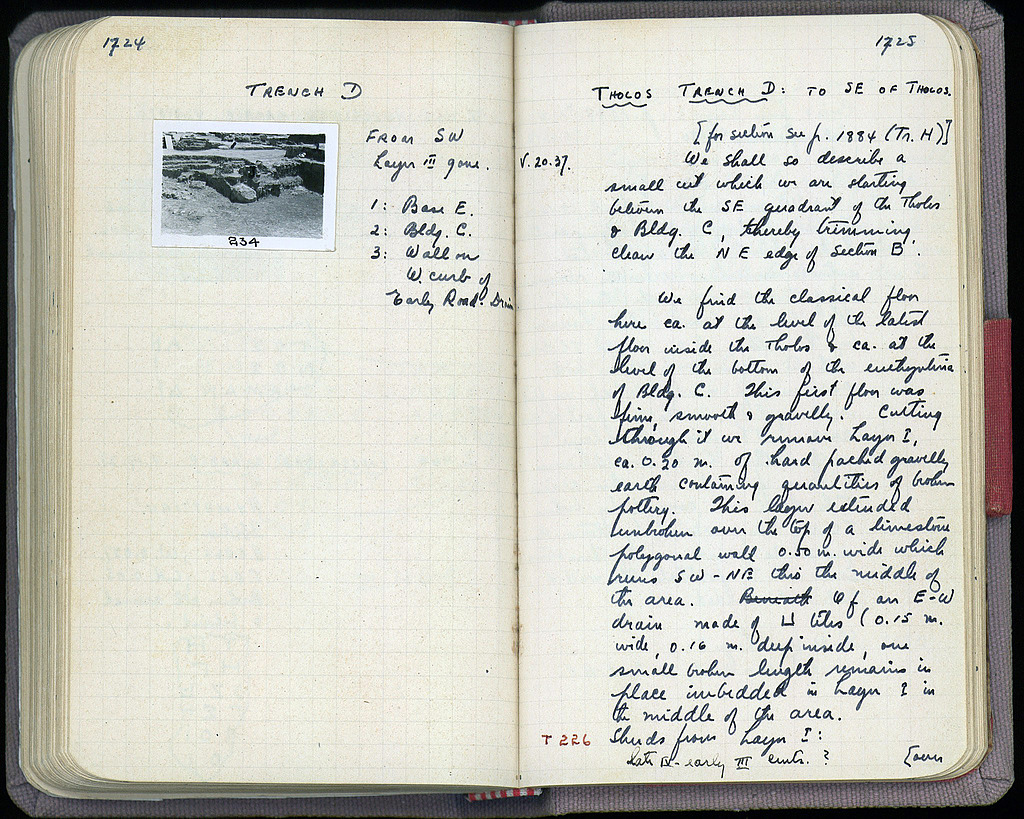 1724
TRENCH D
FROM SW
Layer III gone.
1: Base E.
2: Bldg. C.
3: Wall on
W. curb of
Early Road. Drain
234
1725
THOLOS TRENCH D: TO SE OF THOLOS.
[for section see p. 1884 (Tr. H)]
V. 20. 37.
We shall so describe a
small cut which we are starting
between the SE quadrant of the Tholos
& Bldg. C, thereby trimming
clean the NE edge of Section B.
We find the classical floor
here ca. at the level of the latest
floor inside the Tholos & ca. at the
level of the bottom of the euthynteria
of Bldg. C. This first floor was
firm, smooth & gravelly. Cutting
through it we remove Layer I,
ca. 0.20 m. of hard packed gravelly
earth containing quantities of broken
pottery. This layer extended
unbroken over the top of a limestone
polygonal wall 0.50 m. wide which
runs SW-NE thro the middle of
the area. Beneath Of an E-W
drain made of ⊔ tiles (0.15 m.
wide, 0.16 m. deep inside, one
small broken length remains in
place imbedded in Layer I in
the middle of the area.
T 226 Sherds from Layer I:
late IV - early III cents. ? [over